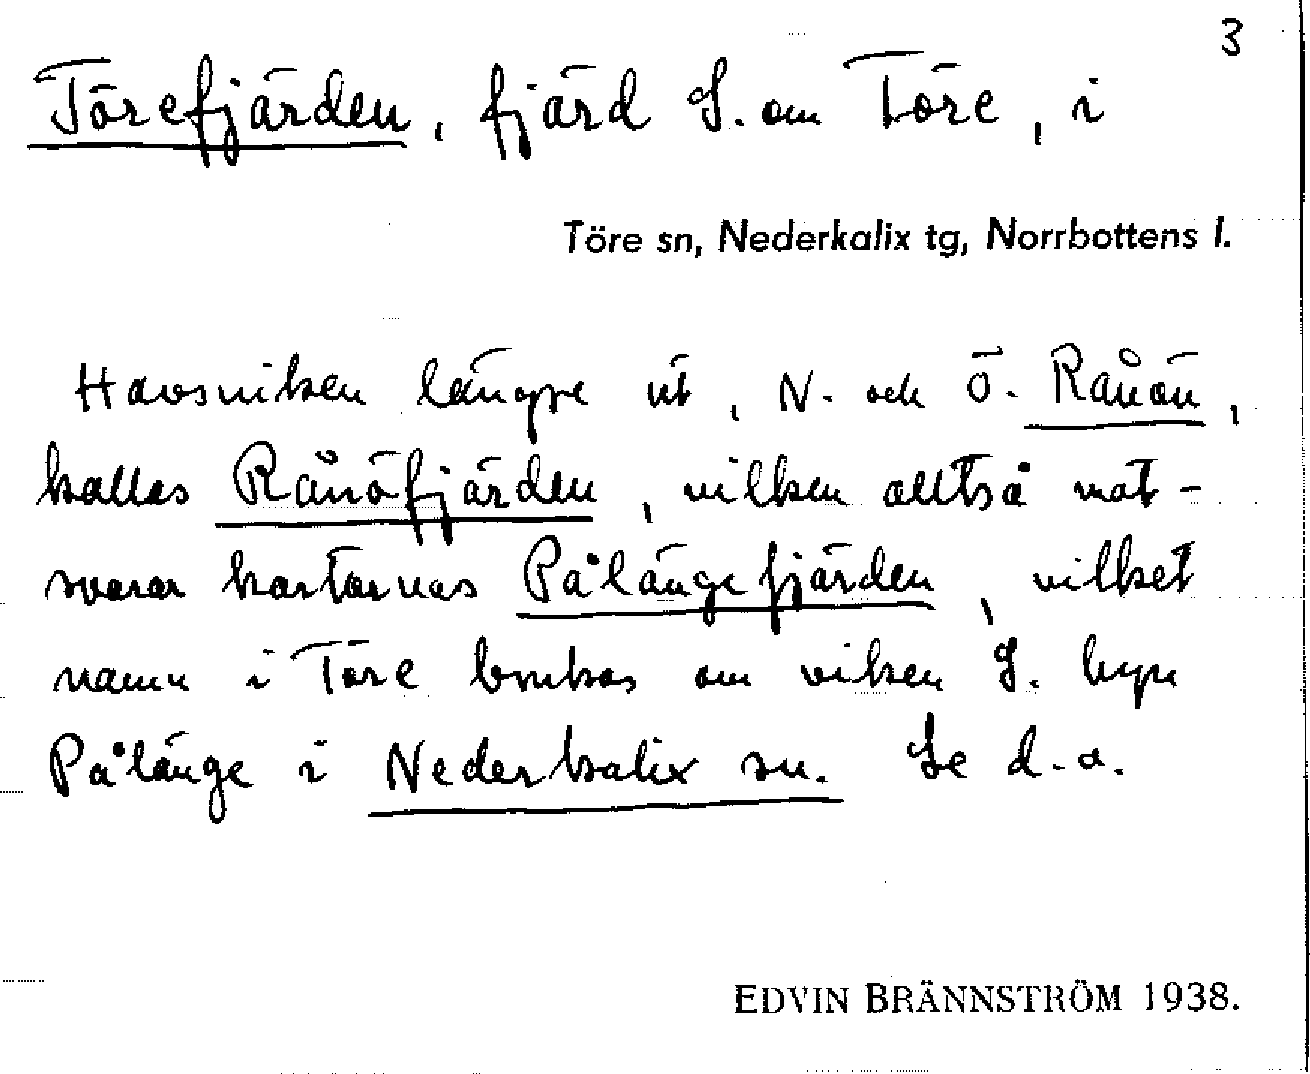 3
Törefjärden, fjärd S. om Töre, i
Töre sn, Nederkalix tg, Norrbottens l.
Havsviken längre ut, N. och Ö. Rånön,
kallas Rånöfjärden, vilken alltså mot-
svarar kartornas Pålängefjärden, vilket
namn i Töre brukas om viken S. byn
Pålänge i Nederkalix sn. Se d.o.
EDVIN BRÄNNSTRÖM 1938.